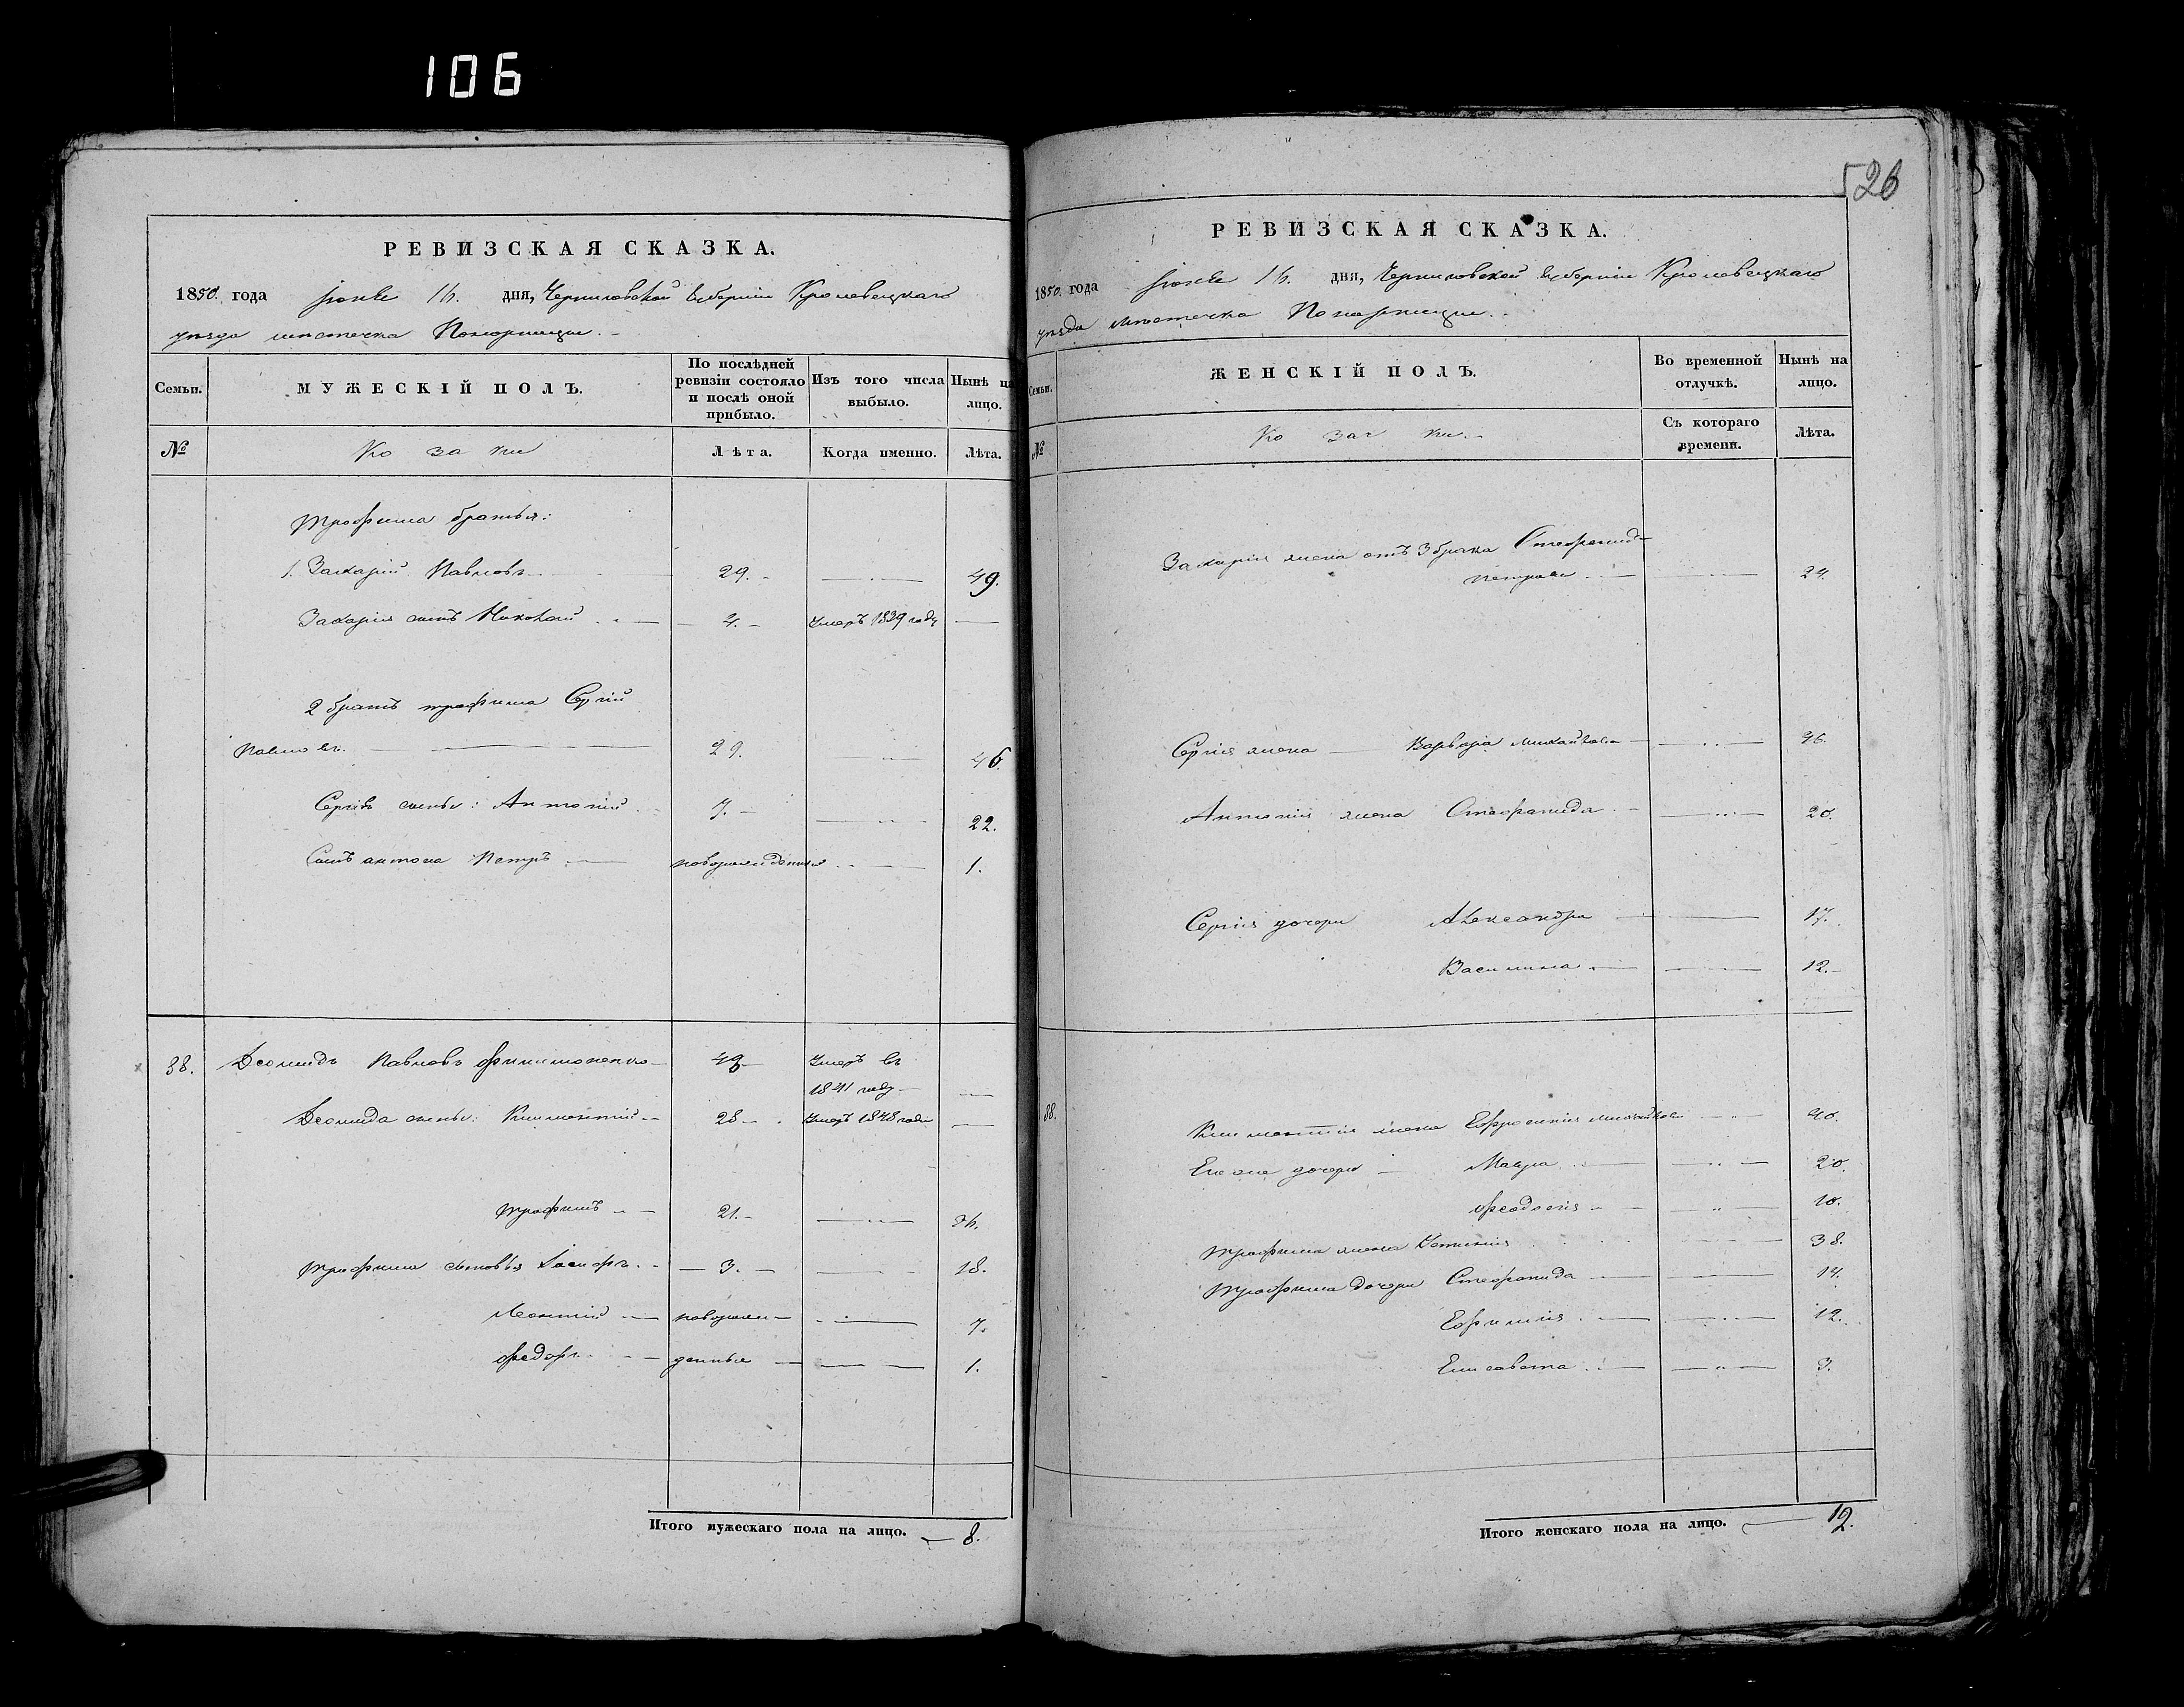 106
РЕВИЗСКАЯ СКАЗКА.
1850 года Іюнь 16. дня, Черниговской Губерніи Кролевецкаго
уѣзда мѣстечка Понорницы.
Семьи.
МУЖЕСКІЙ ПОЛЪ.
По послѣдней ревизіи состояло и послѣ оной прибыло.
Изъ того числа выбыло.
Нынѣ на лицо.
№
Козаки
Лѣта.
Когда именно.
Лѣта.
Трофима братья:
1. Захарій Павловъ 29. 49.
Захарія сынъ Николай 4. Умеръ 1839 году
2 братъ Трофима Сергій
Павловъ. 29. 46.
Сергія сыны: Антоній 7. 22.
Сынъ Антона Петръ новорожденныя 1.
38. Деомидъ Павловъ Филимоненко Умеръ въ
1841 году
Деомида сыны: Климентій 28 Умеръ 1848 году
Трофимъ 21. 36.
Трофима сыновья Іосифъ 3. 18.
Леонтій новорож 7.
Федоръ денные 1.
Итого мужескаго пола на лицо. 8.
526
РЕВИЗСКАЯ СКАЗКА.
1850 года Іюнь 16. дня, Черниговской Губерніи Кролевецкаго
уѣзда мѣстечка Понорницы.
Семьи.
ЖЕНСКІЙ ПОЛЪ.
Во временной отлучкѣ.
Нынѣ на лицо.
№
Козачки
Съ котораго времени.
Лѣта.
Захарія жена отъ 3 брака Стефанида
Петрова 24.
Сергія жена Варвара Михайлова 46.
Антонія жена Стефанида 20.
Сергія дочери Александра 17.
Василина 12.
38.
Климентія жена Ефросинія Михайлова 40.
дочери Мавра 20.
Феодосія 10.
Трофима жена 38.
Трофима дочери Стефанида 14.
Ефимия 12.
Елисавета 3.
Итого женскаго пола на лицо. 12.